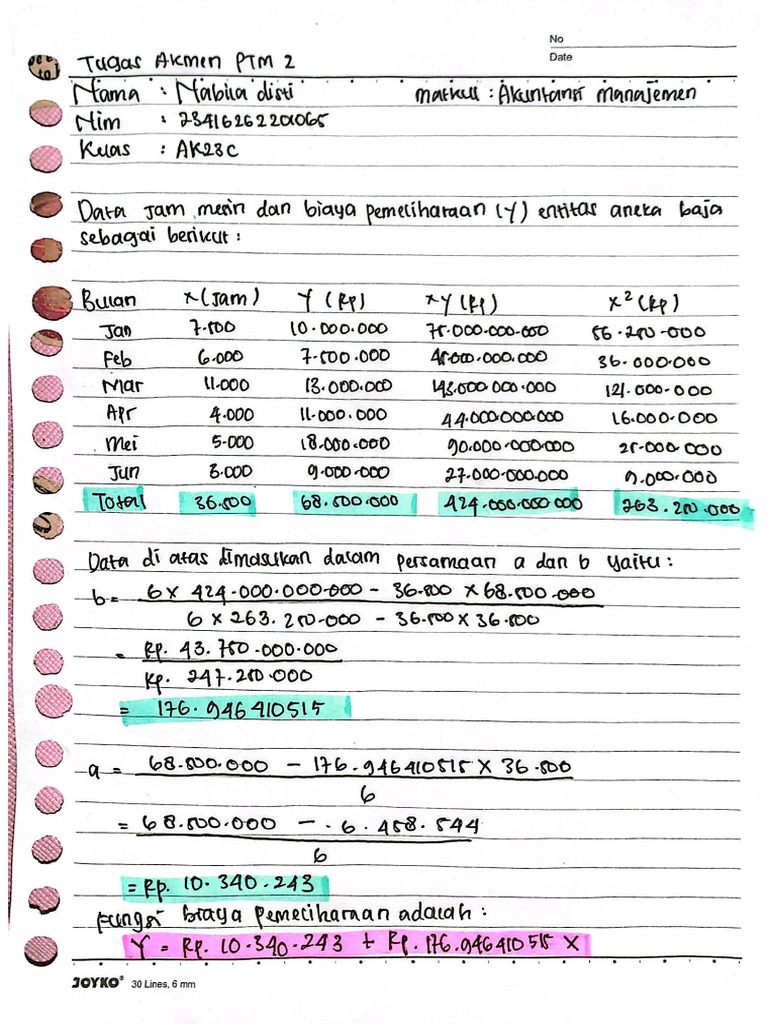 No
Date
Tugas Akmen PTM 2
Nama : Nabila disti matkul : Akuntansi manajemen
Nim : 23416262201065
Kelas : AK23C
Data Jam mesin dan biaya pemeliharaan (Y) entitas aneka baja
sebagai berikut :
Bulan X (Jam) Y (Rp) XY (Rp) X² (Rp)
Jan 7.500 10.000.000 75.000.000.000 56.250.000
Feb 6.000 7.500.000 45.000.000.000 36.000.000
Mar 11.000 13.000.000 143.000.000.000 121.000.000
Apr 4.000 11.000.000 44.000.000.000 16.000.000
Mei 5.000 18.000.000 90.000.000.000 25.000.000
Jun 3.000 9.000.000 27.000.000.000 9.000.000
Total 36.500 68.500.000 424.000.000.000 263.250.000
Data di atas dimasukan dalam persamaan a dan b yaitu :
b = 6 x 424.000.000.000 - 36.500 x 68.500.000
6 x 263.250.000 - 36.500 x 36.500
= Rp. 43.750.000.000
Rp. 247.250.000
= 176.946410515
a = 68.500.000 - 176.946410515 x 36.500
6
= 68.500.000 - . 6.458.544
6
= Rp. 10.340.243
Fungsi biaya pemeliharaan adalah :
Y = Rp. 10.340.243 + Rp. 176.946410515 X
JOYKO® 30 Lines, 6 mm